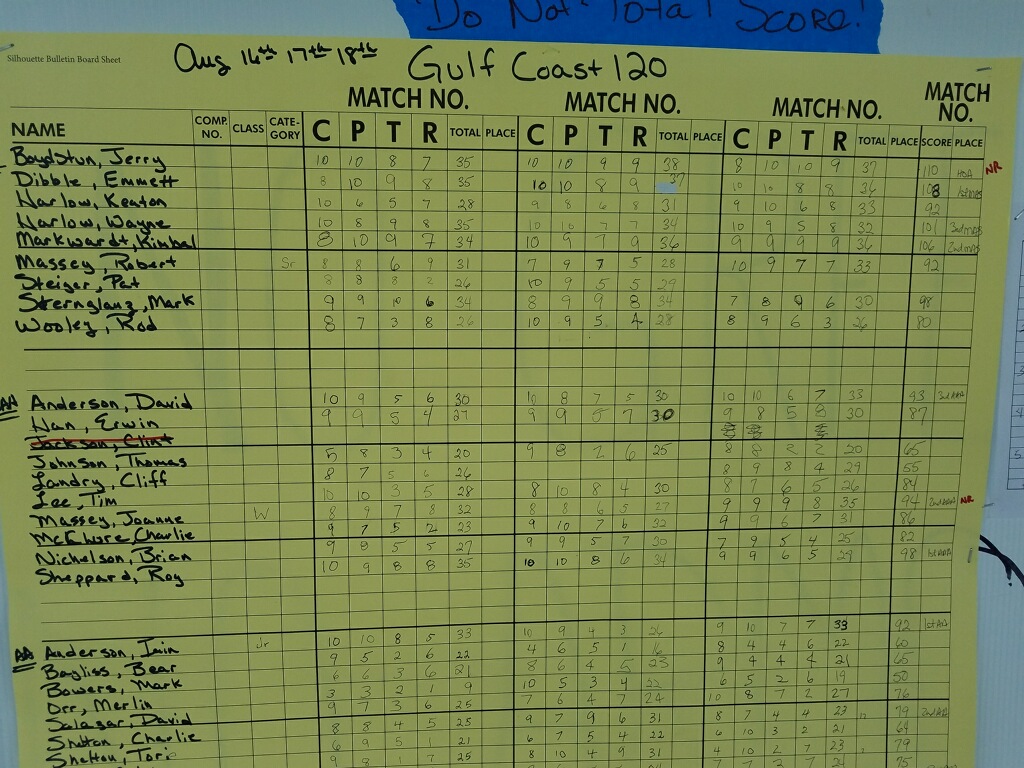 Do Not Total Score!
Silhouette Bulletin Board Sheet
Aug 16th 17th 18th Gulf Coast 120
MATCH NO. MATCH NO. MATCH NO. MATCH NO.
NAME COMP. NO. CLASS CATE-GORY C P T R TOTAL PLACE C P T R TOTAL PLACE C P T R TOTAL PLACE SCORE PLACE
Boydstun, Jerry 10 10 8 7 35 10 10 9 9 38 8 10 10 9 37 110 HOA NR
Dibble, Emmett 8 10 9 8 35 10 10 8 9 37 10 10 8 8 36 108
Harlow, Keaton 10 6 5 7 28 9 8 6 8 31 9 10 6 8 33 92
Harlow, Wayne 10 8 9 8 35 10 10 7 7 34 10 9 5 8 32 101
Markwardt, Kimbal 8 10 9 7 34 10 9 7 9 36 9 9 9 9 36 106
Massey, Robert Sr 8 8 6 9 31 7 9 7 5 28 10 9 7 7 33 92
Steiger, Pat 8 8 8 2 26 10 9 5 5 29
Sternglanz, Mark 9 9 10 6 34 8 9 9 8 34 7 8 9 6 30 98
Wooley, Rod 8 7 3 8 26 10 9 5 4 28 8 9 6 3 26 80
AA Anderson, David 10 9 5 6 30 10 8 7 5 30 10 10 6 7 33 93
Han, Erwin 9 9 5 4 27 9 9 5 7 30 9 8 5 8 30 87
Jackson, Clint
Johnson, Thomas 5 8 3 4 20 9 8 2 6 25 8 8 2 2 20 65
Landry, Cliff 8 7 5 6 26 8 9 8 4 29 55
Lee, Tim 10 10 3 5 28 8 10 8 4 30 8 7 6 5 26 84
Massey, Joanne W 8 9 7 8 32 8 8 6 5 27 9 9 9 8 35 94 NR
McElwre, Charlie 9 7 5 2 23 9 10 7 6 32 9 9 6 7 31 86
Nichelson, Brian 9 8 5 5 27 9 9 5 7 30 7 9 5 4 25 82
Sheppard, Roy 10 9 8 8 35 10 10 8 6 34 9 9 6 5 29 98
AA Anderson, Iain Jr 10 10 8 5 33 10 9 4 3 26 9 10 7 7 33 92
Bayliss, Bear 9 5 2 6 22 4 6 5 1 16 8 4 4 6 22 60
Bowers, Mark 6 6 3 6 21 8 6 4 5 23 9 4 4 4 21 65
Orr, Merlin 3 3 2 1 9 10 5 3 4 22 6 5 2 6 19 50
Salazar, David 9 7 3 6 25 7 6 4 7 24 10 8 7 2 27 76
Shelton, Charlie 8 8 4 5 25 9 7 9 6 31 8 7 4 4 23 79
Shelton, Tori 6 9 5 1 21 6 7 5 4 22 6 10 3 2 21 64
9 8 1 7 25 8 10 4 9 31 4 10 2 7 23 79
75